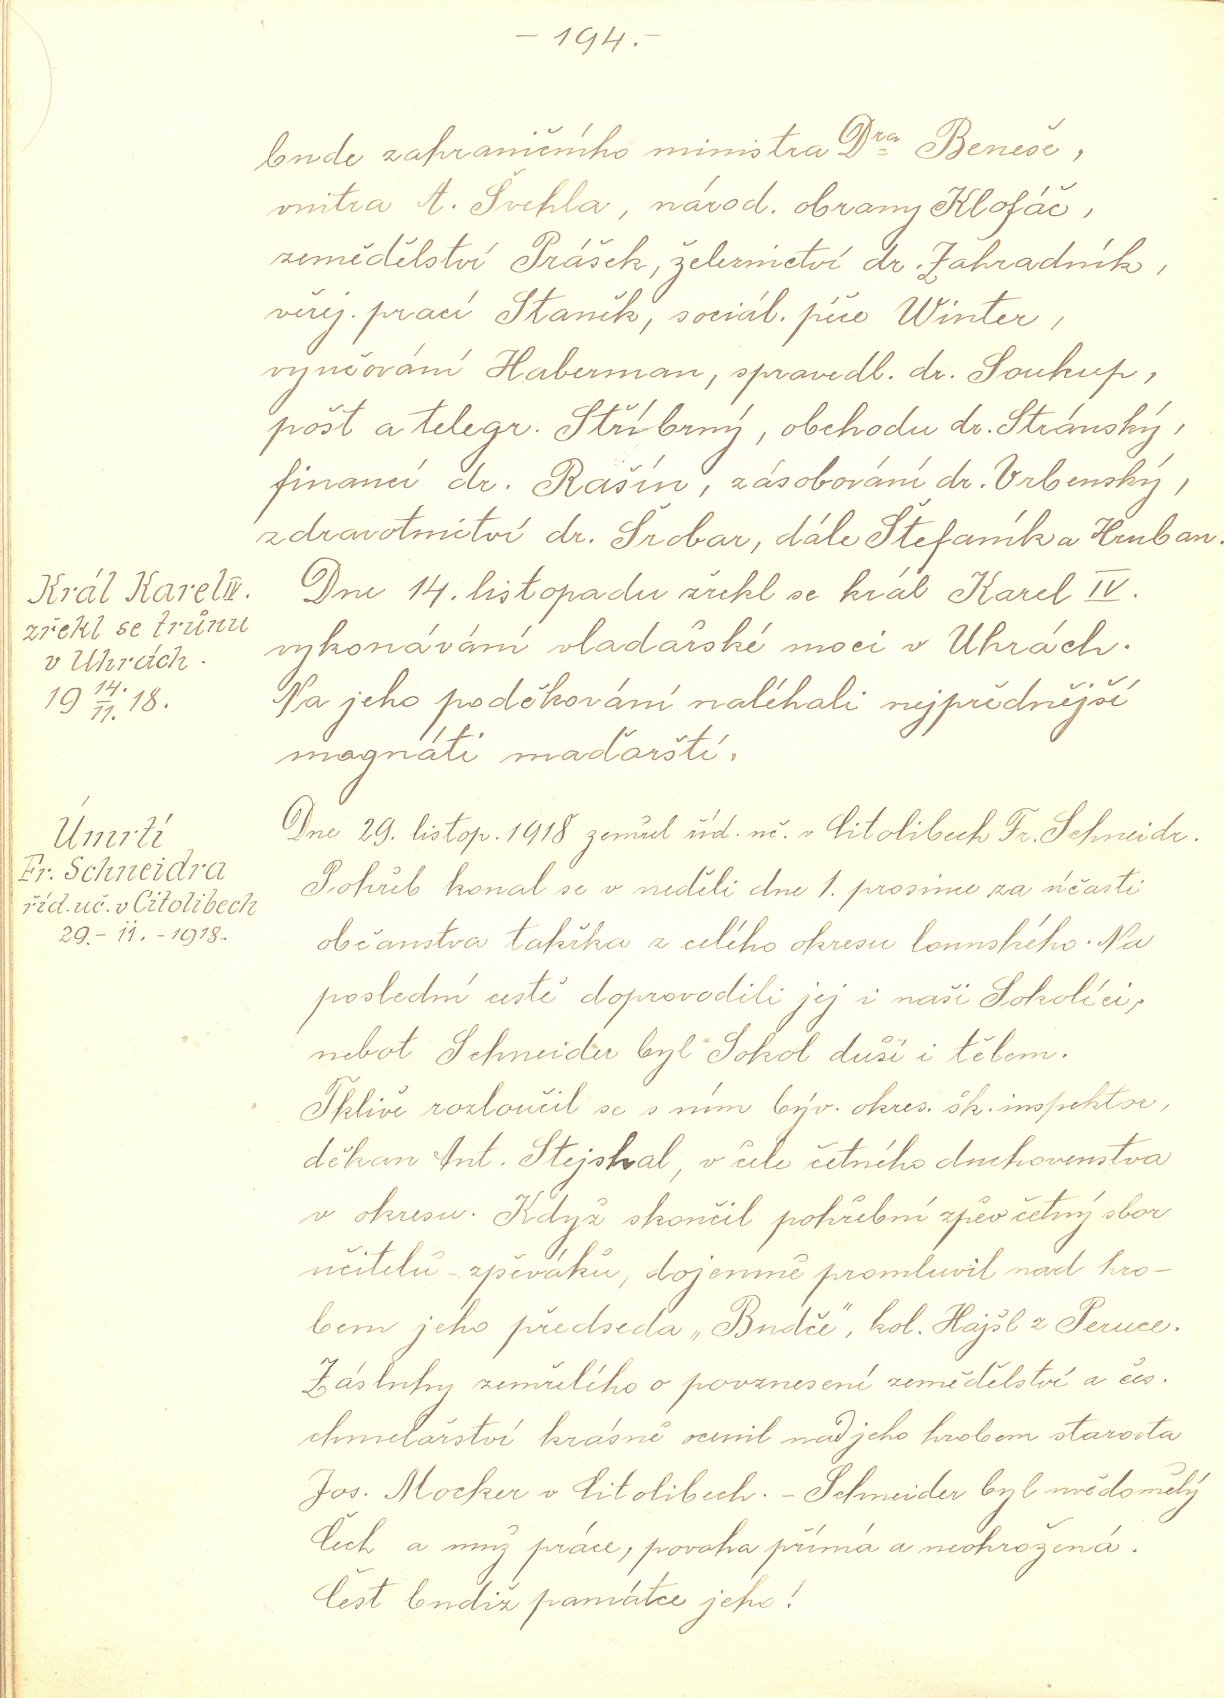 - 194. -
bude zahraničního ministra Dra Beneše,
vnitra A. Švehla, národ. obrany Klofáč,
zemědělství Prášek, železnictví dr. Zahradník,
veřej. prací Staněk, sociál. péče Winter,
vyučování Haberman, spravedl. dr. Soukup,
pošt a telegr. Stříbrný, obchodu dr. Stránský,
financí dr. Rašín, zásobování dr. Vrbenský,
zdravotnictví dr. Šrobar, dále Štefaník a Hruban.
Král Karel IV.
zřekl se trůnu
v Uhrách.
19 14./11. 18.
Dne 14. listopadu zřekl se král Karel IV.
vykonávání vladařské moci v Uhrách.
Na jeho poděkování naléhali nejpřednější
magnáti maďarští.
Úmrtí
Fr. Schneidra
říd. uč. v Citolibech
29. - 11. - 1918.
Dne 29. listop. 1918 zemřel říd. uč. v Citolibech Fr. Schneidr.
Pohřeb konal se v neděli dne 1. prosince za účasti
občanstva takřka z celého okresu lounského. Na
poslední cestě doprovodili jej i naši Sokolíci,
neboť Schneider byl Sokol duší i tělem.
Tklivě rozloučil se s ním býv. okres. šk. inspektor,
děkan Ant. Stejskal, v čele četného duchovenstva
v okresu. Když skončil pohřební zpěv četný sbor
učitelů - zpěváků, dojemně promluvil nad hro-
bem jeho předseda „Budče", kol. Hajšl z Peruce.
Zásluhy zemřelého o povznesení zemědělství a čes.
chmelařství krásně ocenil nad jeho hrobem starosta
Jos. Mocker v Citolibech. - Schneider byl uvědomělý
Čech a muž práce, povaha přímá a neohrožená.
Čest budiž památce jeho!